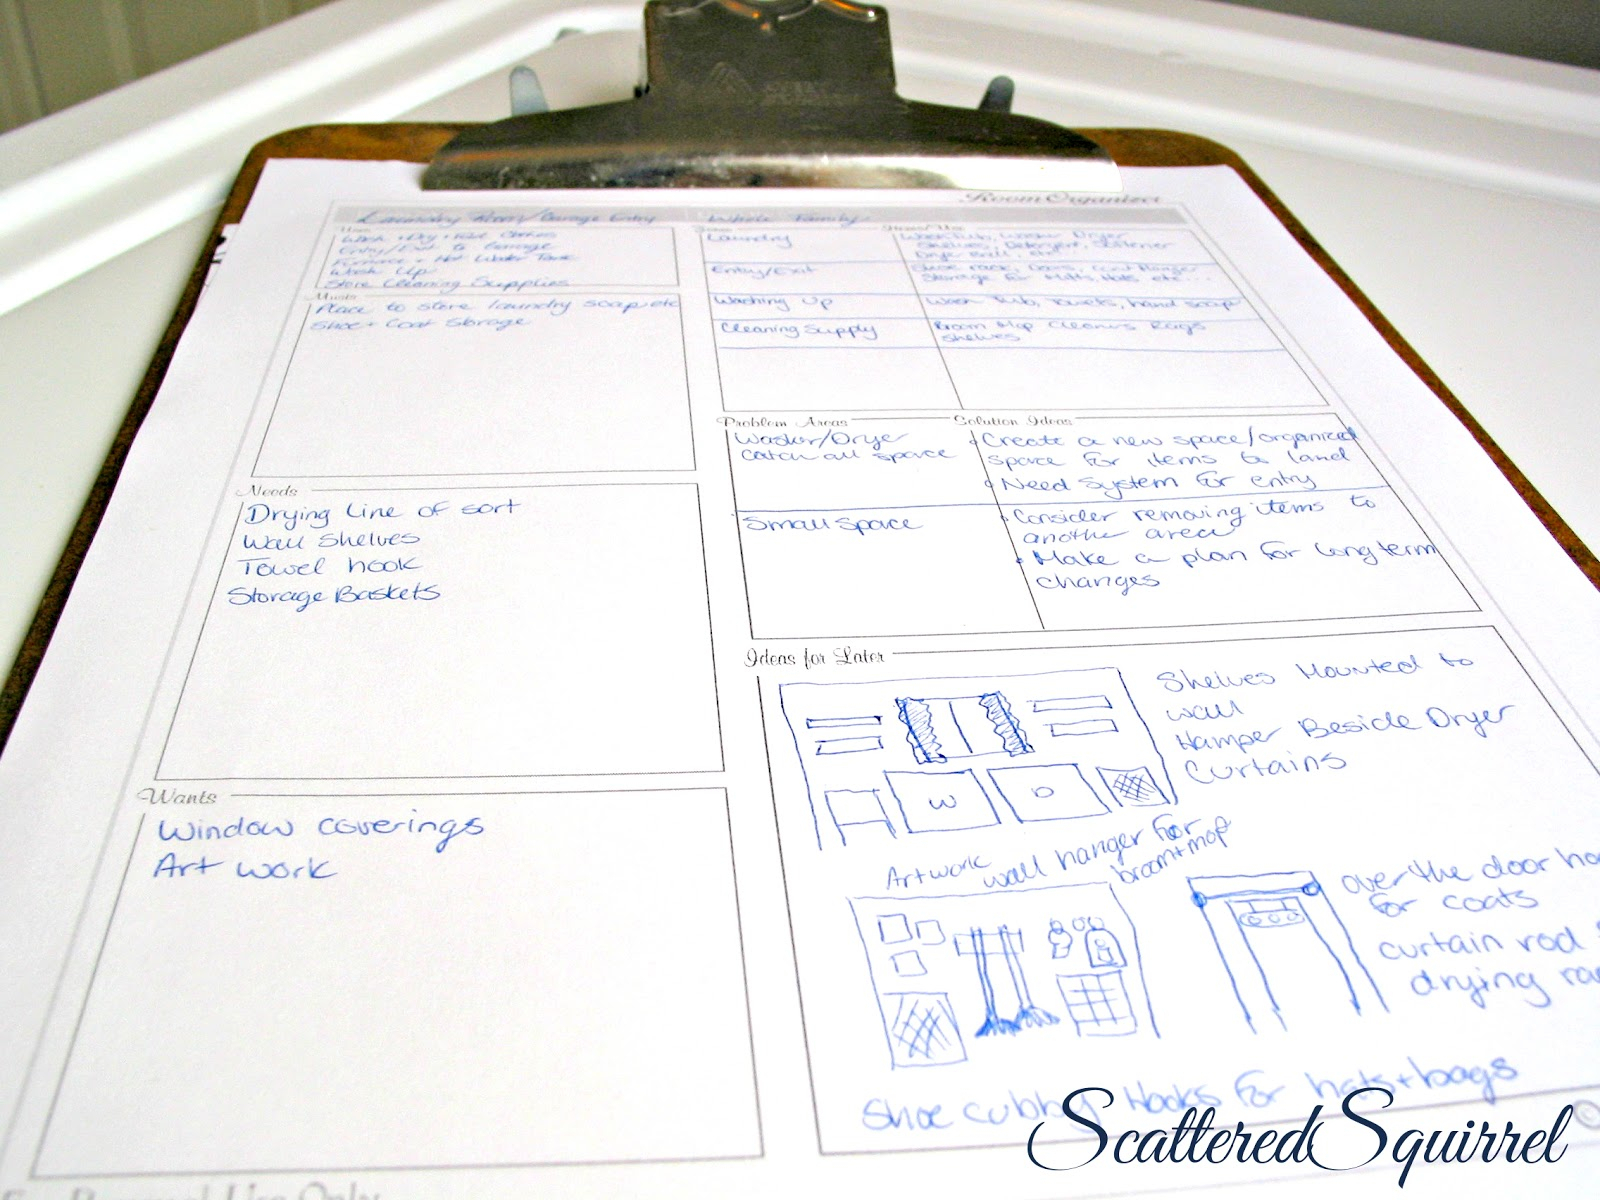 Room Organizer
Laundry Room/Garage Entry
Whole Family
Uses
Wash + Dry + Fold Clothes
Entry/Exit to Garage
Furnace + Hot Water Tank
Wash Up
Store Cleaning Supplies
Musts
Place to store laundry soap etc
Shoe + Coat Storage
Needs
Drying Line of sort
Wall Shelves
Towel hook
Storage Baskets
Wants
Window coverings
Art work
Laundry
Wash Tub, Washer Dryer
Shelves, Detergent, Softener
Dryer Ball, etc
Entry/Exit
Shoe rack, Doors, Coat Hanger
Storage for Mitts, Hats etc...
Washing Up
Wash Tub, towels, hand soap
Cleaning Supply
Broom Mop Cleaners Rags
Shelves
Problem Areas
Solution Ideas
Washer/Dryer
Catch all space
Create a new space/organized
space for items to land
Need System for entry
Small Space
Consider removing items to
another area
Make a plan for long term
changes
Ideas for Later
Shelves Mounted to
wall
Hamper Beside Dryer
Curtains
W
D
Artwork
wall hanger for
broom + mop
over the door
for coats
curtain rod
drying
Shoe cubby Hooks for hats + bags
ScatteredSquirrel
©
Personal Use Only